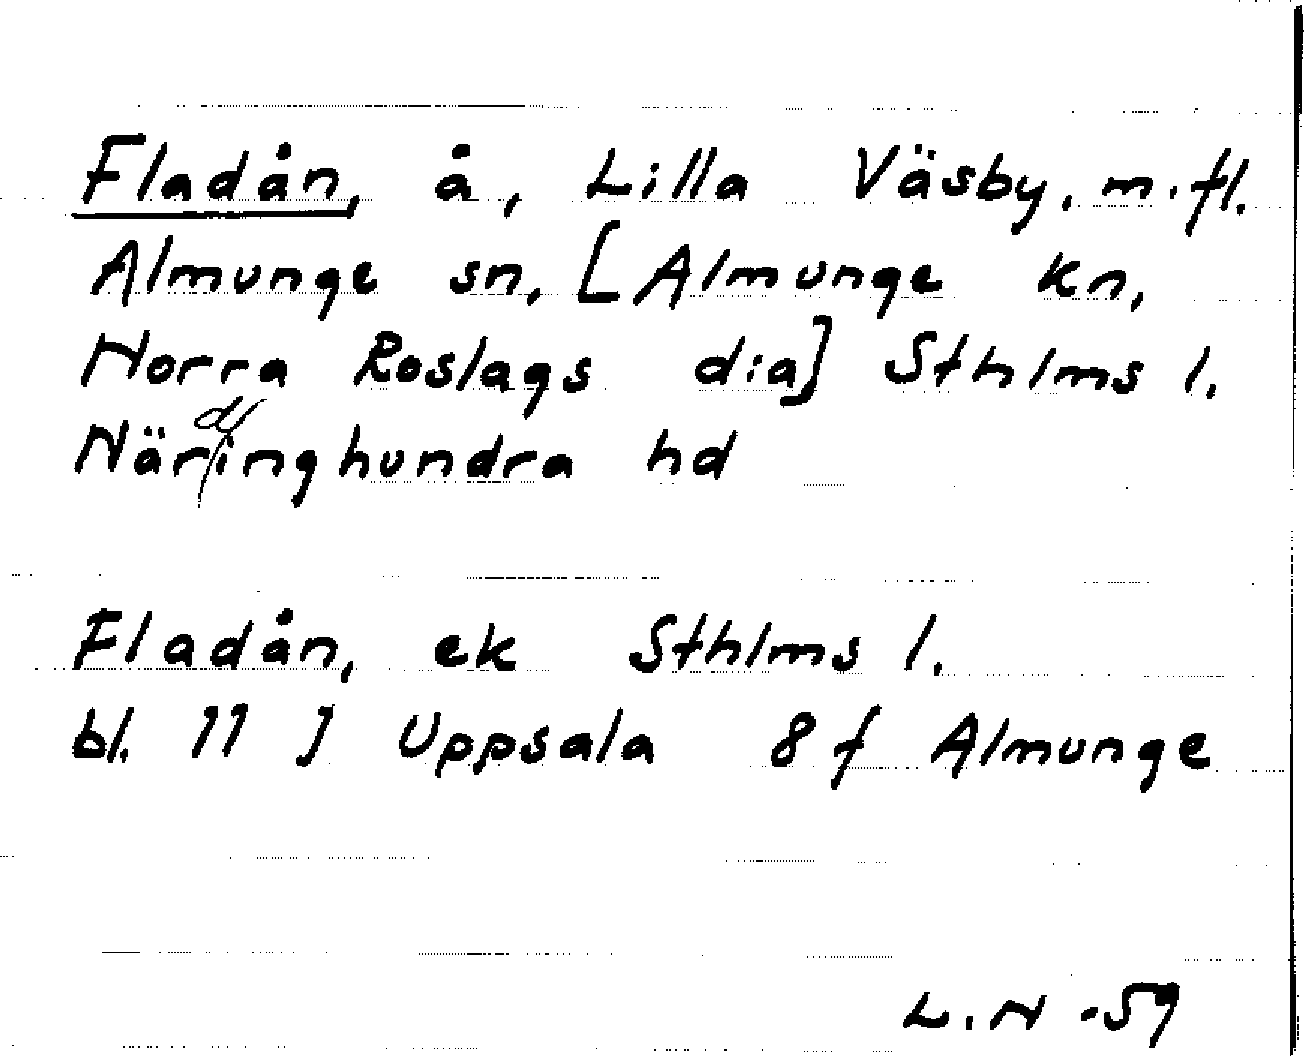 Fladån, å, Lilla Väsby, m.fl.
Almunge sn, [Almunge kn,
Norra Roslags dia] Sthlms l.
Närdinghundra hd
Fladån, ek Sthlms l.
bl. 11 J Uppsala 8 f Almunge
L.N -59